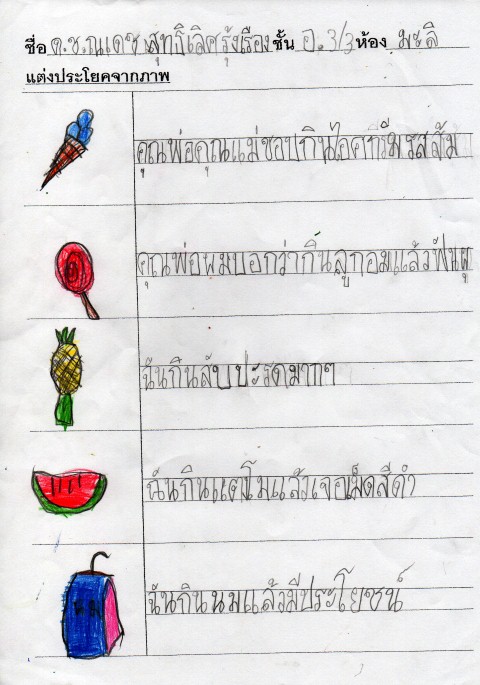 ชื่อ ด.ช.ณเดช สุทธิเลิศรุ่งเรือง ชั้น อ.3/3 ห้อง มะลิ
แต่งประโยคจากภาพ
คุณพ่อคุณแม่ชอบกินไอศกรีมรสจั้ม
คุณพ่อผมบอกว่ากินลูกอมแล้วฟันผุ
ฉันกินสับปะรดมากๆ
ฉันกินแตงโมแล้วเจอเม็ดสีดำ
นม
ฉันกินนมแล้วมีประโยชน์